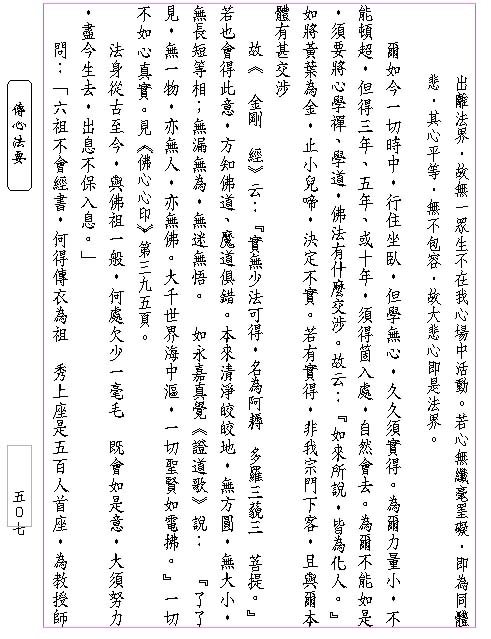 出離法界，故無一眾生不在我心場中活動。若心無纖毫罣礙，即為同體
悲，其心平等，無不包容，故大悲心即是法界。
爾如今一切時中，行住坐臥，但學無心，久久須實得。為爾力量小，不
能頓超，但得三年、五年、或十年，須得箇入處，自然會去。為爾不能如是
，須要將心學禪、學道，佛法有什麼交涉。故云：『如來所說，皆為化人。』
如將黃葉為金，止小兒啼，決定不實。若有實得，非我宗門下客，且與爾本
體有甚交涉
故《　金剛　經》云：『實無少法可得，名為阿耨　多羅三藐三　菩提。』
若也會得此意，方知佛道、魔道俱錯。本來清淨皎皎地，無方圓，無大小，
無長短等相；無漏無為，無迷無悟。　如永嘉真覺《證道歌》說：　『了了
見，無一物，亦無人，亦無佛。大千世界海中漚，一切聖賢如電拂。』一切
不如心真實。見《佛心心印》第三九五頁。
法身從古至今，與佛祖一般，何處欠少一毫毛　既會如是意，大須努力
，盡今生去，出息不保入息。」
問：「六祖不會經書，何得傳衣為祖　秀上座是五百人首座，為教授師
傳心法要
五０七